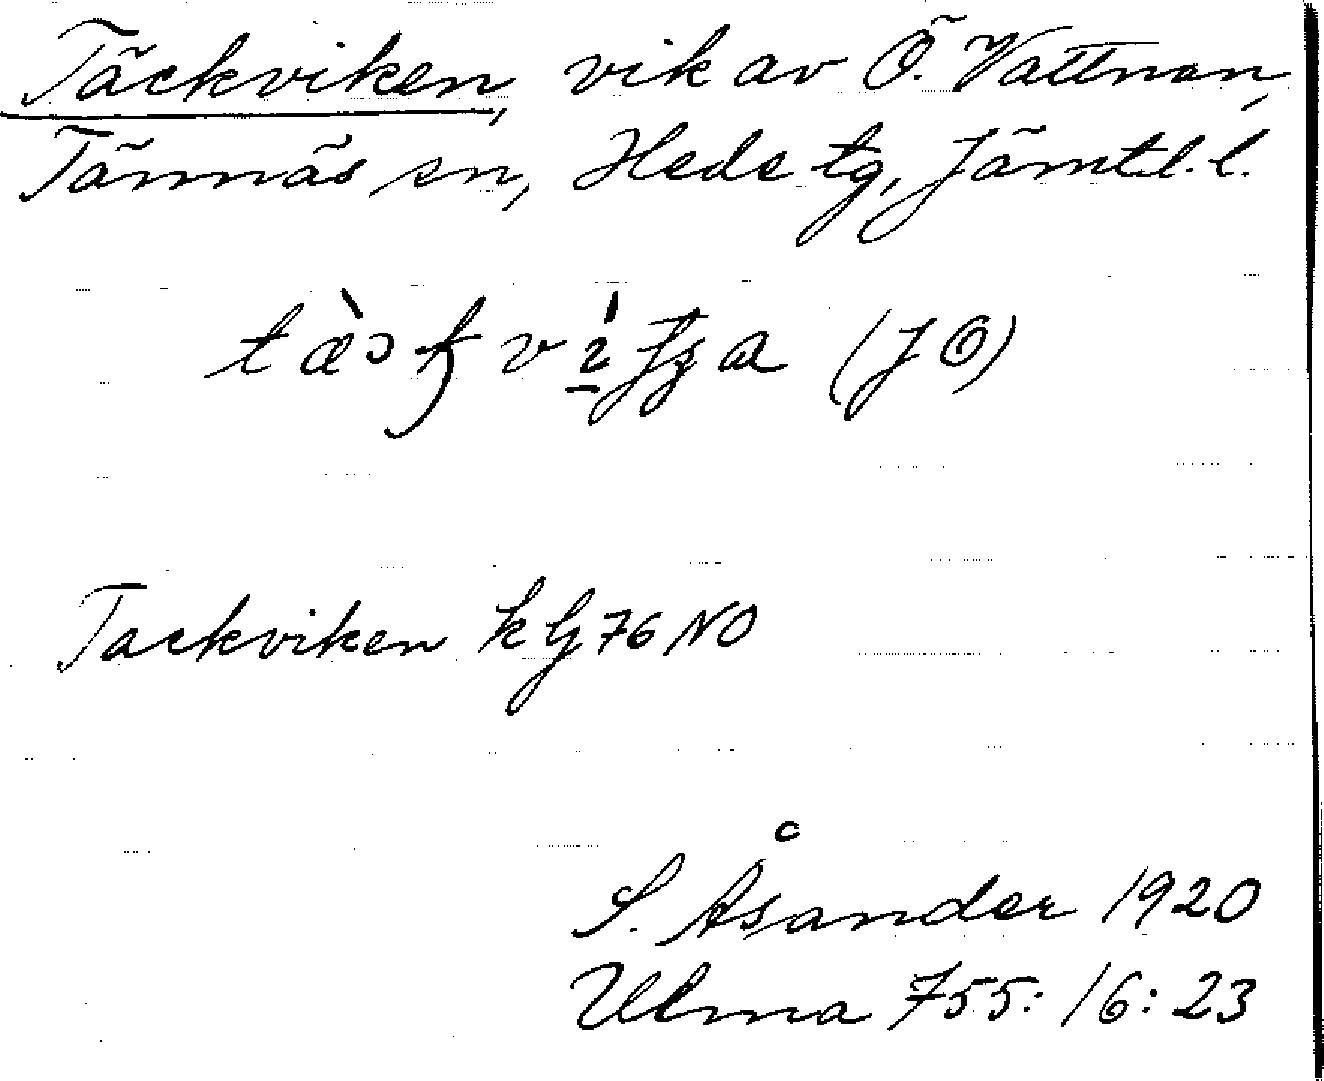 Täckviken, vik av Ö. Vattnan,
Tännäs sn, Hede tg, Jämtl. l.
(JÖ)
Tackviken kG 76 NO
S. Åsander 1920
Ulma 755: 16: 23